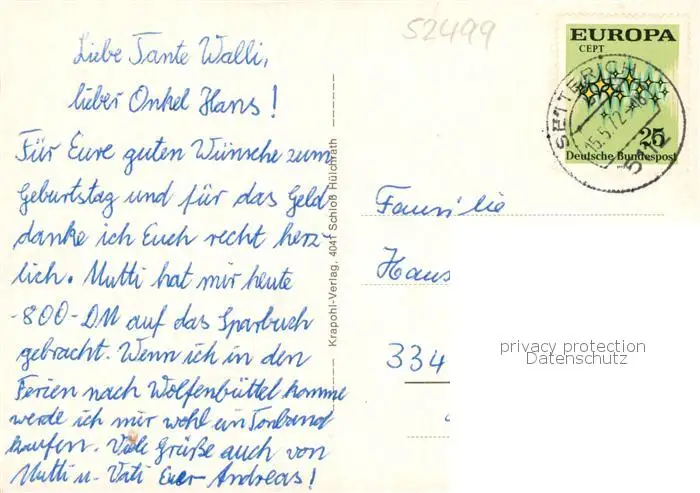 52499
EUROPA
CEPT
25
Deutsche Bundespost
SETTERICH
15.5.72
Liebe Tante Walli,
lieber Onkel Hans!
Für Eure guten Wünsche zum
Geburtstag und für das Geld
danke ich Euch recht herz-
lich. Mutti hat mir heute
-800-DM auf das Sparbuch
gebracht. Wenn ich in den
Ferien nach Wolfenbüttel komme
werde ich mir wohl ein Tonband
kaufen. Viele Grüße auch von
Mutti u. Vati Euer Andreas!
Krapohl-Verlag, 4041 Schloß Hülchrath
Familie
Hans
334
privacy protection
Datenschutz